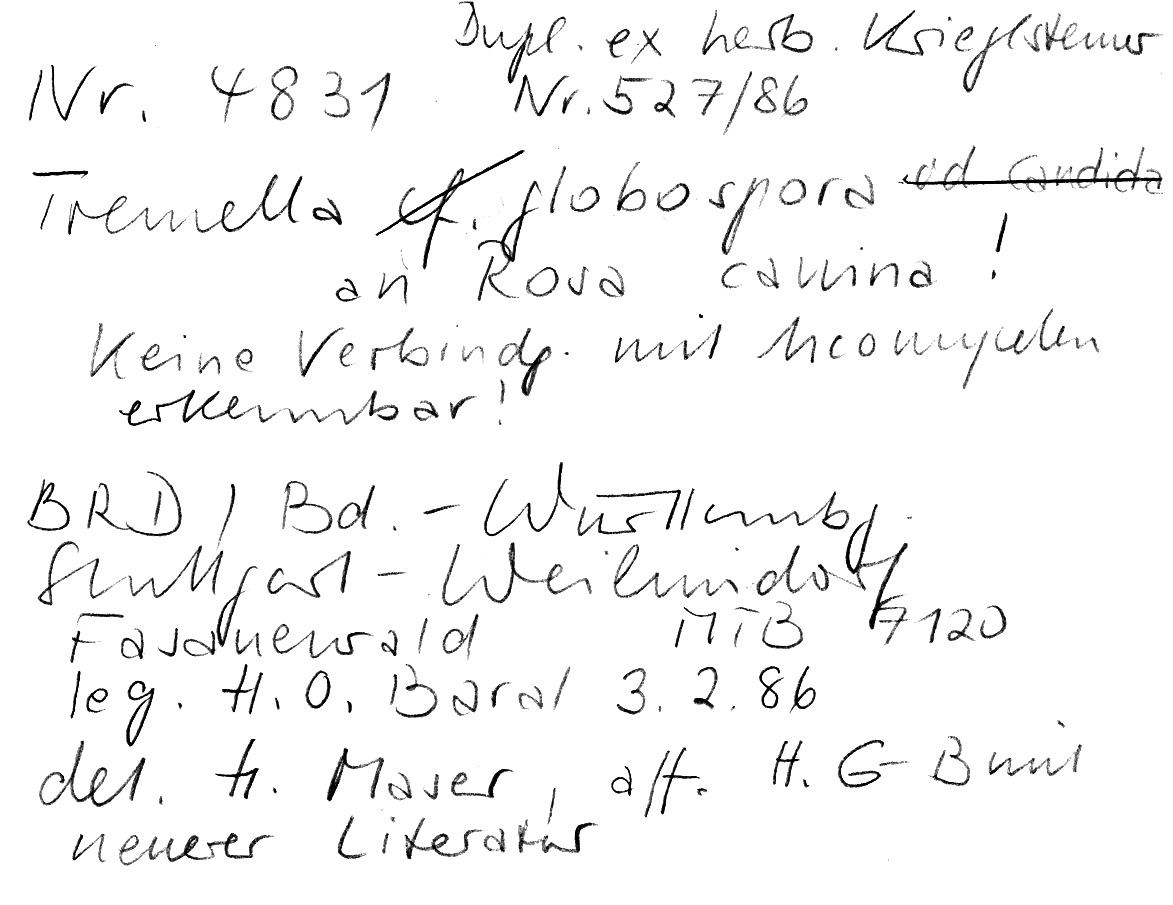 Dupl. ex herb. Krieglsteiner
Nr. 4831 Nr. 527/86
Tremella cf. globospora od candida
an Rosa canina !
Keine Verbindg. mit Ascomyceten
erkennbar!
BRD / Bd. - Württembg.
Stuttgart - Weilimdorf
Fasanenwald MTB 7120
leg. H.O. Baral 3.2.86
det. H. Maser, aff. H. G B mit
neuerer Literatur